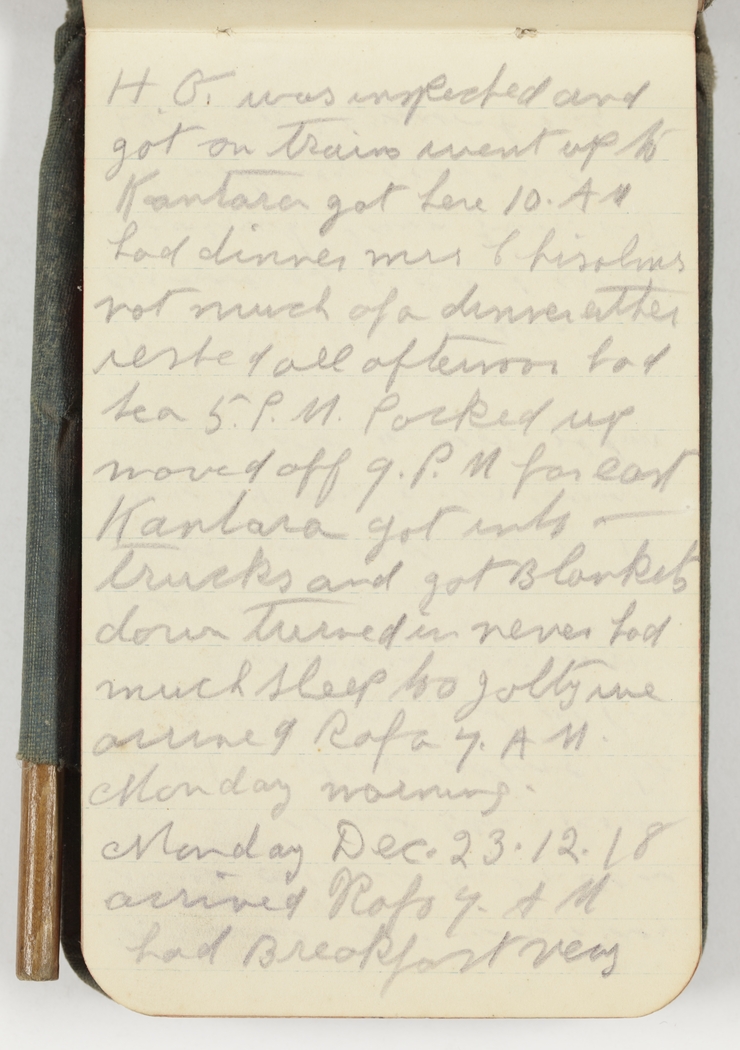 H.Q. was inspected and
got on train went up to
Kantara got here 10. A M
had dinner mrs Chisolms
not much of a dinner either
rested all afternoon had
tea 5. P. M. Packed up
moved off 9. P. M for east
Kantara got into —
trucks and got Blankets
down turned in never had
much sleep too jolty we
arrived Rafa 7. A M.
Monday morning.
Monday Dec. 23.12.18
arrived Rafa 7. A M
had Breakfast very